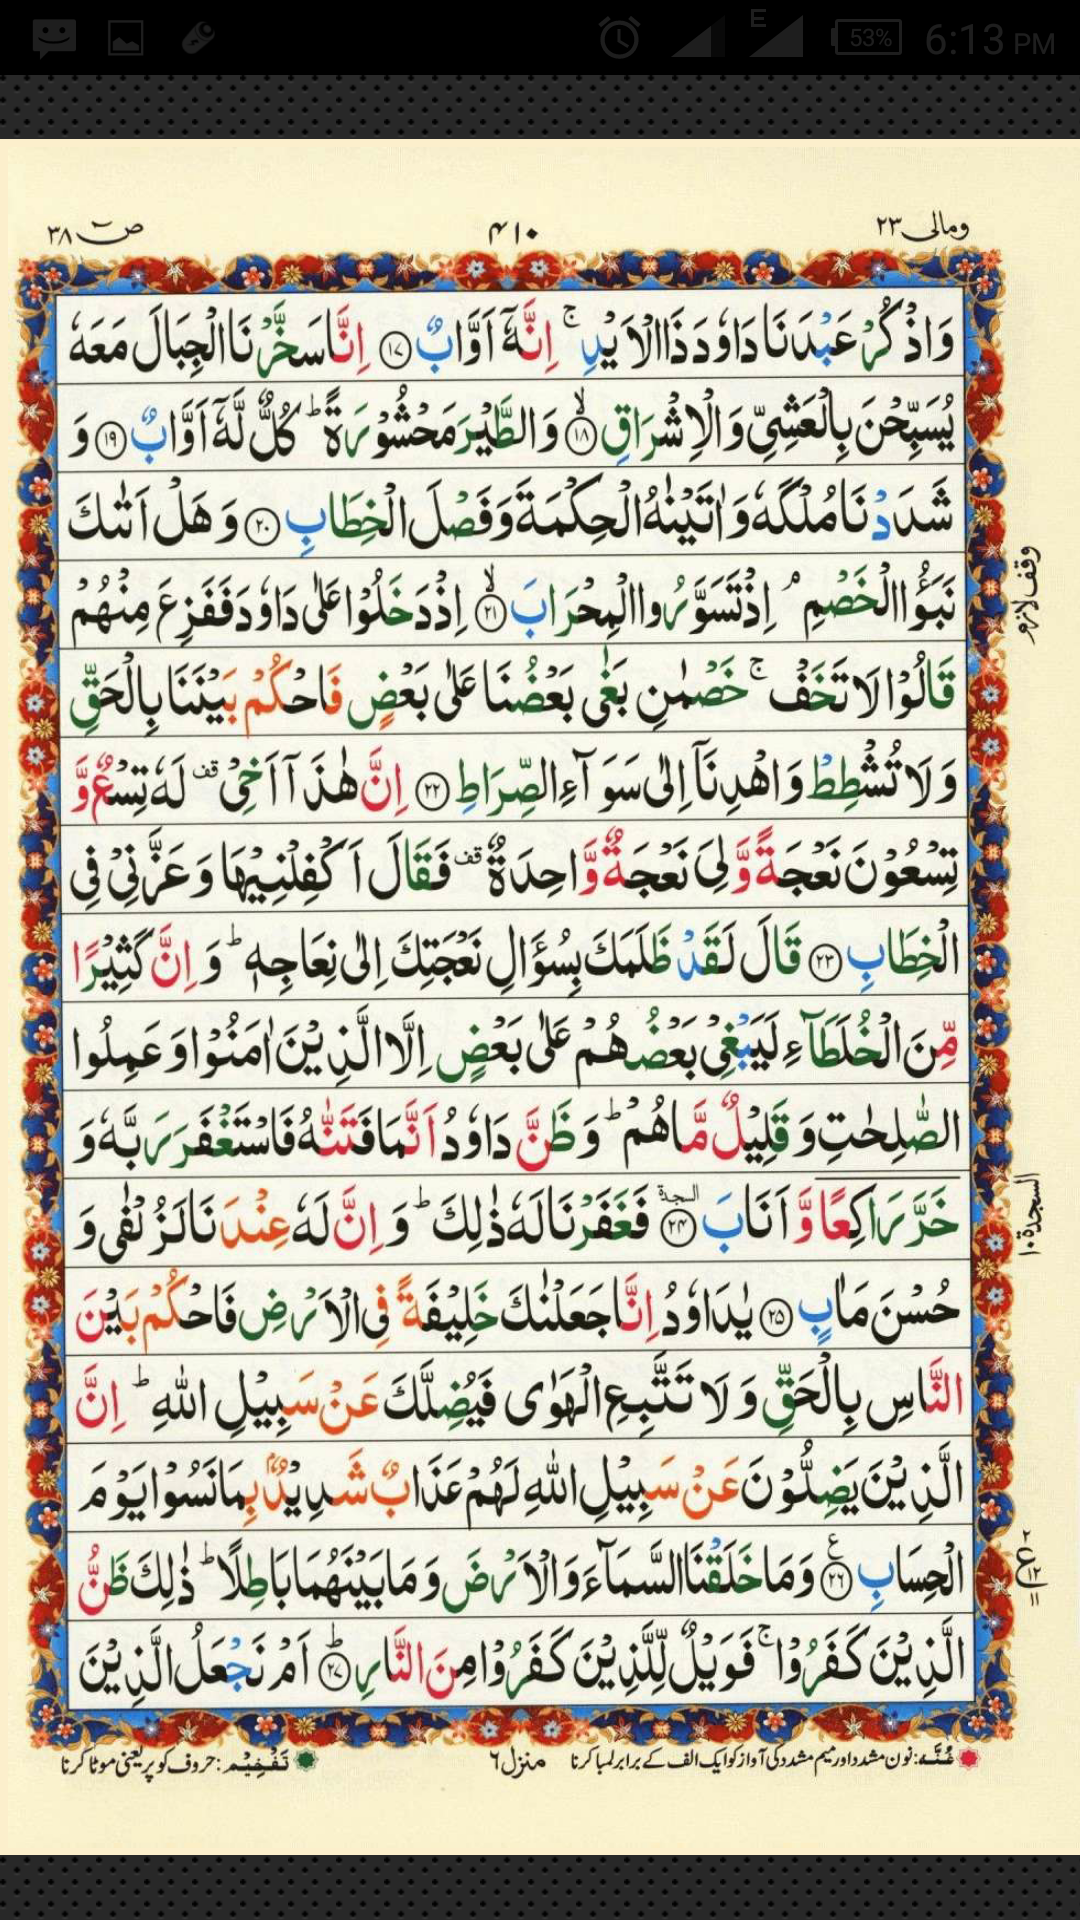 53% 6:13 PM
E
ومالی ۲۳
۴۱۰
ص ۳۸
وَاذْكُرْ عَبْدَنَا دَاوٗدَ ذَا الْاَيْدِ ۚ اِنَّهٗۤ اَوَّابٌ ۝۱۷ اِنَّا سَخَّرْنَا الْجِبَالَ مَعَهٗ
يُسَبِّحْنَ بِالْعَشِيِّ وَالْاِشْرَاقِ ۝۱۸ۙ وَالطَّيْرَ مَحْشُوْرَةً ؕ كُلٌّ لَّهٗۤ اَوَّابٌ ۝۱۹ وَ
شَدَدْنَا مُلْكَهٗ وَاٰتَيْنٰهُ الْحِكْمَةَ وَفَصْلَ الْخِطَابِ ۝۲۰ وَهَلْ اَتٰىكَ
نَبَؤُا الْخَصْمِ ۘ اِذْ تَسَوَّرُوا الْمِحْرَابَ ۝۲۱ۙ اِذْ دَخَلُوْا عَلٰى دَاوٗدَ فَفَزِعَ مِنْهُمْ
وقف لازم
قَالُوْا لَا تَخَفْ ۚ خَصْمٰنِ بَغٰى بَعْضُنَا عَلٰى بَعْضٍ فَاحْكُمْ بَيْنَنَا بِالْحَقِّ
وَلَا تُشْطِطْ وَاهْدِنَاۤ اِلٰى سَوَآءِ الصِّرَاطِ ۝۲۲ اِنَّ هٰذَاۤ اَخِيْ ۫ لَهٗ تِسْعٌ وَّ
تِسْعُوْنَ نَعْجَةً وَّلِيَ نَعْجَةٌ وَّاحِدَةٌ ۫ فَقَالَ اَكْفِلْنِيْهَا وَعَزَّنِيْ فِي
الْخِطَابِ ۝۲۳ قَالَ لَقَدْ ظَلَمَكَ بِسُؤَالِ نَعْجَتِكَ اِلٰى نِعَاجِهٖ ؕ وَاِنَّ كَثِيْرًا
مِّنَ الْخُلَطَآءِ لَيَبْغِيْ بَعْضُهُمْ عَلٰى بَعْضٍ اِلَّا الَّذِيْنَ اٰمَنُوْا وَعَمِلُوا
الصّٰلِحٰتِ وَقَلِيْلٌ مَّا هُمْ ؕ وَظَنَّ دَاوٗدُ اَنَّمَا فَتَنّٰهُ فَاسْتَغْفَرَ رَبَّهٗ وَ
خَرَّ رَاكِعًا وَّاَنَابَ ۝۲۴ السجدة فَغَفَرْنَا لَهٗ ذٰلِكَ ؕ وَاِنَّ لَهٗ عِنْدَنَا لَزُلْفٰى وَ
السجدة ۱۰
حُسْنَ مَاٰبٍ ۝۲۵ يٰدَاوٗدُ اِنَّا جَعَلْنٰكَ خَلِيْفَةً فِي الْاَرْضِ فَاحْكُمْ بَيْنَ
النَّاسِ بِالْحَقِّ وَلَا تَتَّبِعِ الْهَوٰى فَيُضِلَّكَ عَنْ سَبِيْلِ اللّٰهِ ؕ اِنَّ
الَّذِيْنَ يَضِلُّوْنَ عَنْ سَبِيْلِ اللّٰهِ لَهُمْ عَذَابٌ شَدِيْدٌۢ بِمَا نَسُوْا يَوْمَ
الْحِسَابِ ۝۲۶ وَمَا خَلَقْنَا السَّمَآءَ وَالْاَرْضَ وَمَا بَيْنَهُمَا بَاطِلًا ؕ ذٰلِكَ ظَنُّ
ع ۲ ۱۲ ۱۱
الَّذِيْنَ كَفَرُوْا ۚ فَوَيْلٌ لِّلَّذِيْنَ كَفَرُوْا مِنَ النَّارِ ۝۲۷ؕ اَمْ نَجْعَلُ الَّذِيْنَ
غُنَّه: نون مشدد اور میم مشدد کی آواز کو ایک الف کے برابر لمبا کرنا منزل ۶ تَفْخِيْم: حروف کو پُر یعنی موٹا کرنا